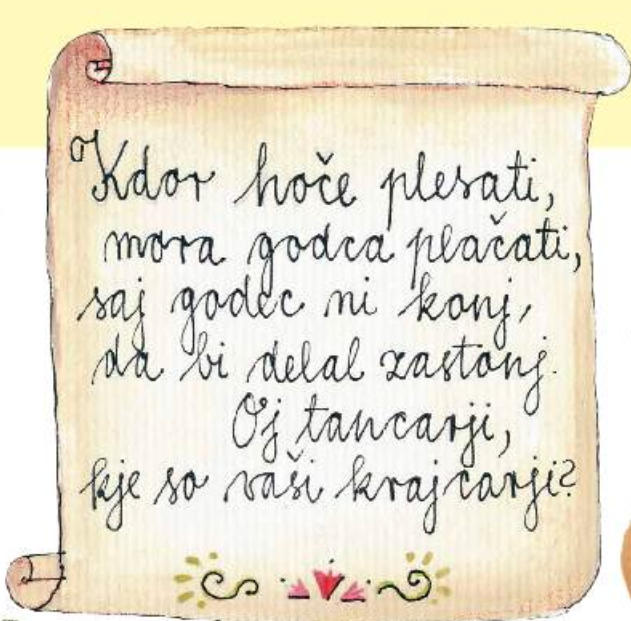 Kdor hoče plesati,
mora godca plačati,
saj godec ni konj,
da bi delal zastonj.
Oj tancarji,
kje so vaši krajcarji?